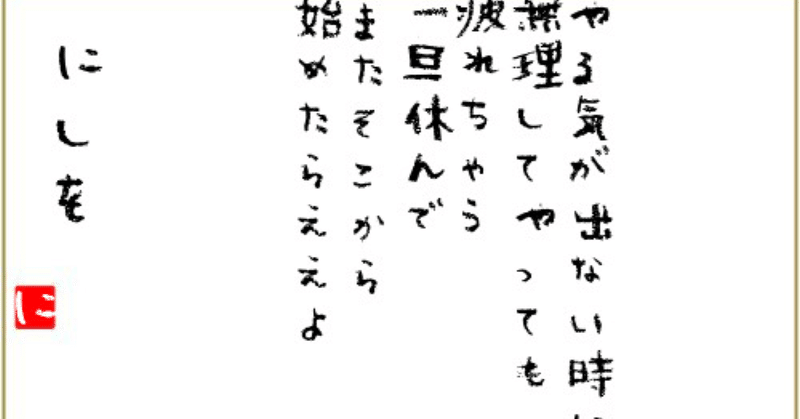 やる気が出ない時に
無理してやっても
疲れちゃう
一旦休んで
またそこから
始めたらええよ
にしを
に